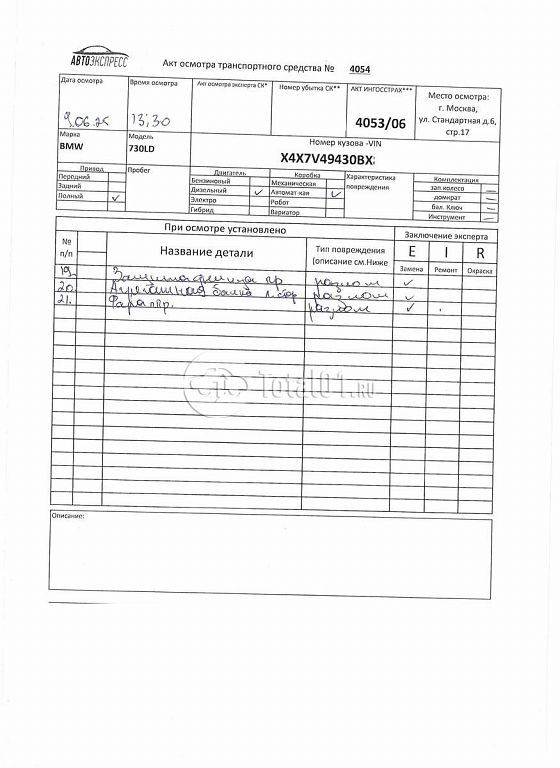 АВТОЭКСПРЕСС
Акт осмотра транспортного средства № 4054
Дата осмотра
Время осмотра
Акт осмотра эксперта СК*
Номер убытка СК**
АКТ ИНГОССТРАХ***
Место осмотра:
г. Москва,
ул. Стандартная д.6,
стр.17
13:30
4053/06
Марка
BMW
Модель
730LD
Номер кузова -VIN
X4X7V49430BX
Привод
Передний
Задний
Полный
Пробег
Двигатель
Бензиновый
Дизельный
Электро
Гибрид
Коробка
Механическая
Автомат-кая
Робот
Вариатор
Характеристика
повреждения
Комплектация
зап.колесо
домкрат
бал. Ключ
Инструмент
При осмотре установлено
Заключение эксперта
№
п/п
Название детали
Тип повреждения
(описание см.Ниже
E I R
Замена
Ремонт
Окраска
19. разлом
20. разлом
21. Фара пр. разлом
Total01.RU
Описание: